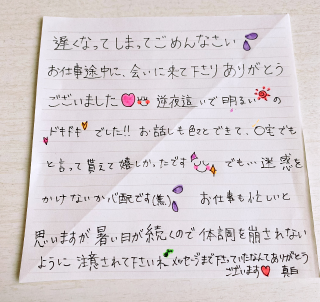 遅くなってしまってごめんなさい
お仕事途中に、会いに来て下さりありがとう
ございました 逆夜這いで明るいの
ドキドキでした!! お話しも色々とできて、〇宅でも
と言って貰えて嬉しかったです でも… 迷惑を
かけないか心配です(焦) お仕事も忙しいと
思いますが暑い日が続くので体調を崩されない
ように注意されて下さいね メッセージまで下さっていたなんてありがとう
ございます 真白